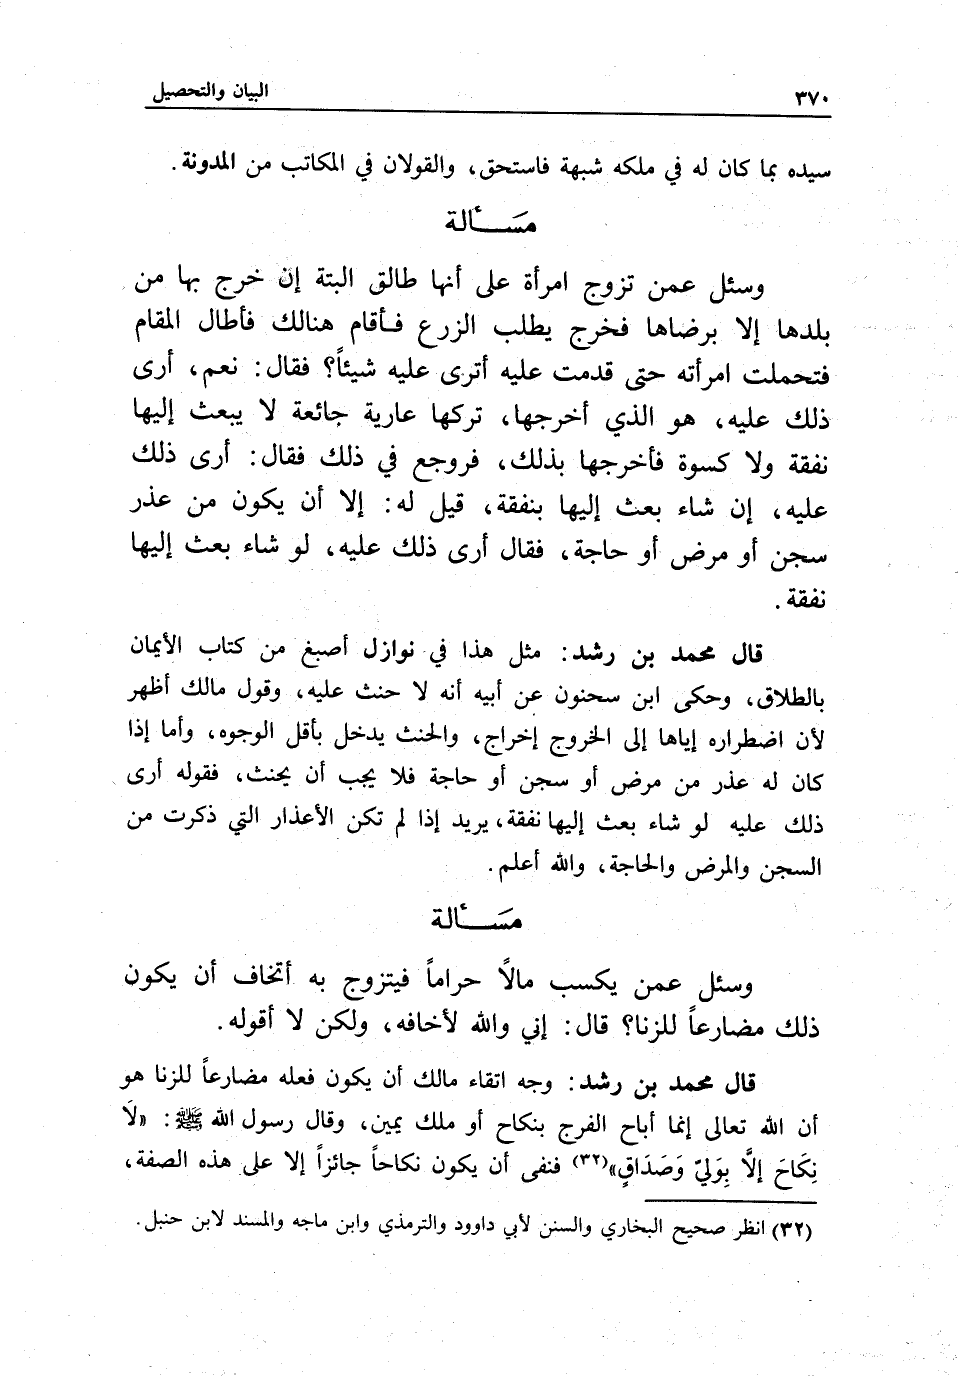 ٣٧٠ البيان والتحصيل
سيده بما كان له في ملكه شبهة فاستحق، والقولان في المكاتب من المدونة.
مَسْــأَلة
وسئل عمن تزوج امرأة على أنها طالق البتة إن خرج بها من
بلدها إلا برضاها فخرج يطلب الزرع فأقام هنالك فأطال المقام
فتحملت امرأته حتى قدمت عليه أترى عليه شيئاً؟ فقال: نعم، أرى
ذلك عليه، هو الذي أخرجها، تركها عارية جائعة لا يبعث إليها
نفقة ولا كسوة فأخرجها بذلك، فروجع في ذلك فقال: أرى ذلك
عليه، إن شاء بعث إليها بنفقة، قيل له: إلا أن يكون من عذر
سجن أو مرض أو حاجة، فقال أرى ذلك عليه، لو شاء بعث إليها
نفقة.
قال محمد بن رشد: مثل هذا في نوازل أصبغ من كتاب الأيمان
بالطلاق، وحكى ابن سحنون عن أبيه أنه لا حنث عليه، وقول مالك أظهر
لأن اضطراره إياها إلى الخروج إخراج، والحنث يدخل بأقل الوجوه، وأما إذا
كان له عذر من مرض أو سجن أو حاجة فلا يجب أن يحنث، فقوله أرى
ذلك عليه لو شاء بعث إليها نفقة، يريد إذا لم تكن الأعذار التي ذكرت من
السجن والمرض والحاجة، والله أعلم.
مَسْــأَلة
وسئل عمن يكسب مالاً حراماً فيتزوج به أتخاف أن يكون
ذلك مضارعاً للزنا؟ قال: إني والله لأخافه، ولكن لا أقوله.
قال محمد بن رشد: وجه اتقاء مالك أن يكون فعله مضارعاً للزنا هو
أن الله تعالى إنما أباح الفرج بنكاح أو ملك يمين، وقال رسول الله ﷺ: «لَا
نِكَاحَ إلَّا بِوَلِيّ وَصَدَاقٍ»(٣٢) فنفى أن يكون نكاحاً جائزاً إلا على هذه الصفة،
(٣٢) انظر صحيح البخاري والسنن لأبي داوود والترمذي وابن ماجه والمسند لابن حنبل.